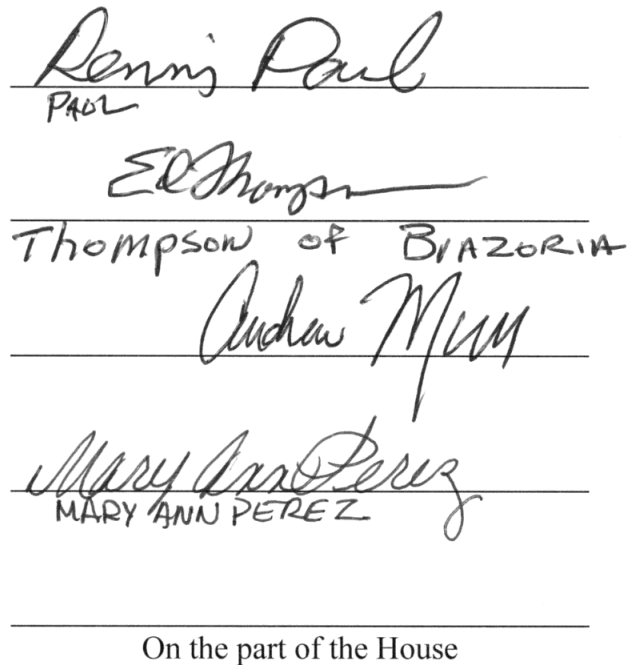 Dennis Paul
PAUL
Ed Thompson
Thompson of BrAZORIA
Andrew Murr
Mary Ann Perez
MARY ANN PEREZ
On the part of the House